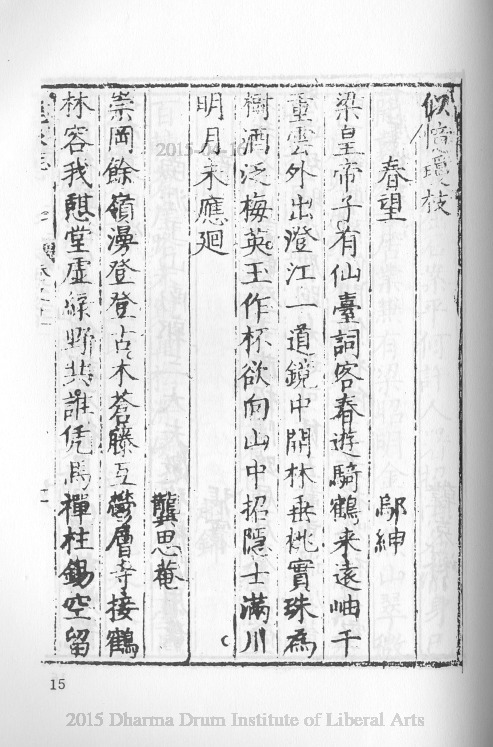 似億瓊枝
春望 鄔紳
梁皇帝子有仙臺詞客春遊騎鶴来遠岫千
重雲外出澄江一道鏡中開林垂桃實珠為
樹酒泛梅英玉作杯欲向山中招隱士滿川
明月来應廻
龔思菴
崇岡餘嶺漫登登古木蒼藤互鬱層寺接鶴
林容我憇堂虛緑野共誰凭馬禪柱錫空留
2015-04-16
15
2015 Dharma Drum Institute of Liberal Arts